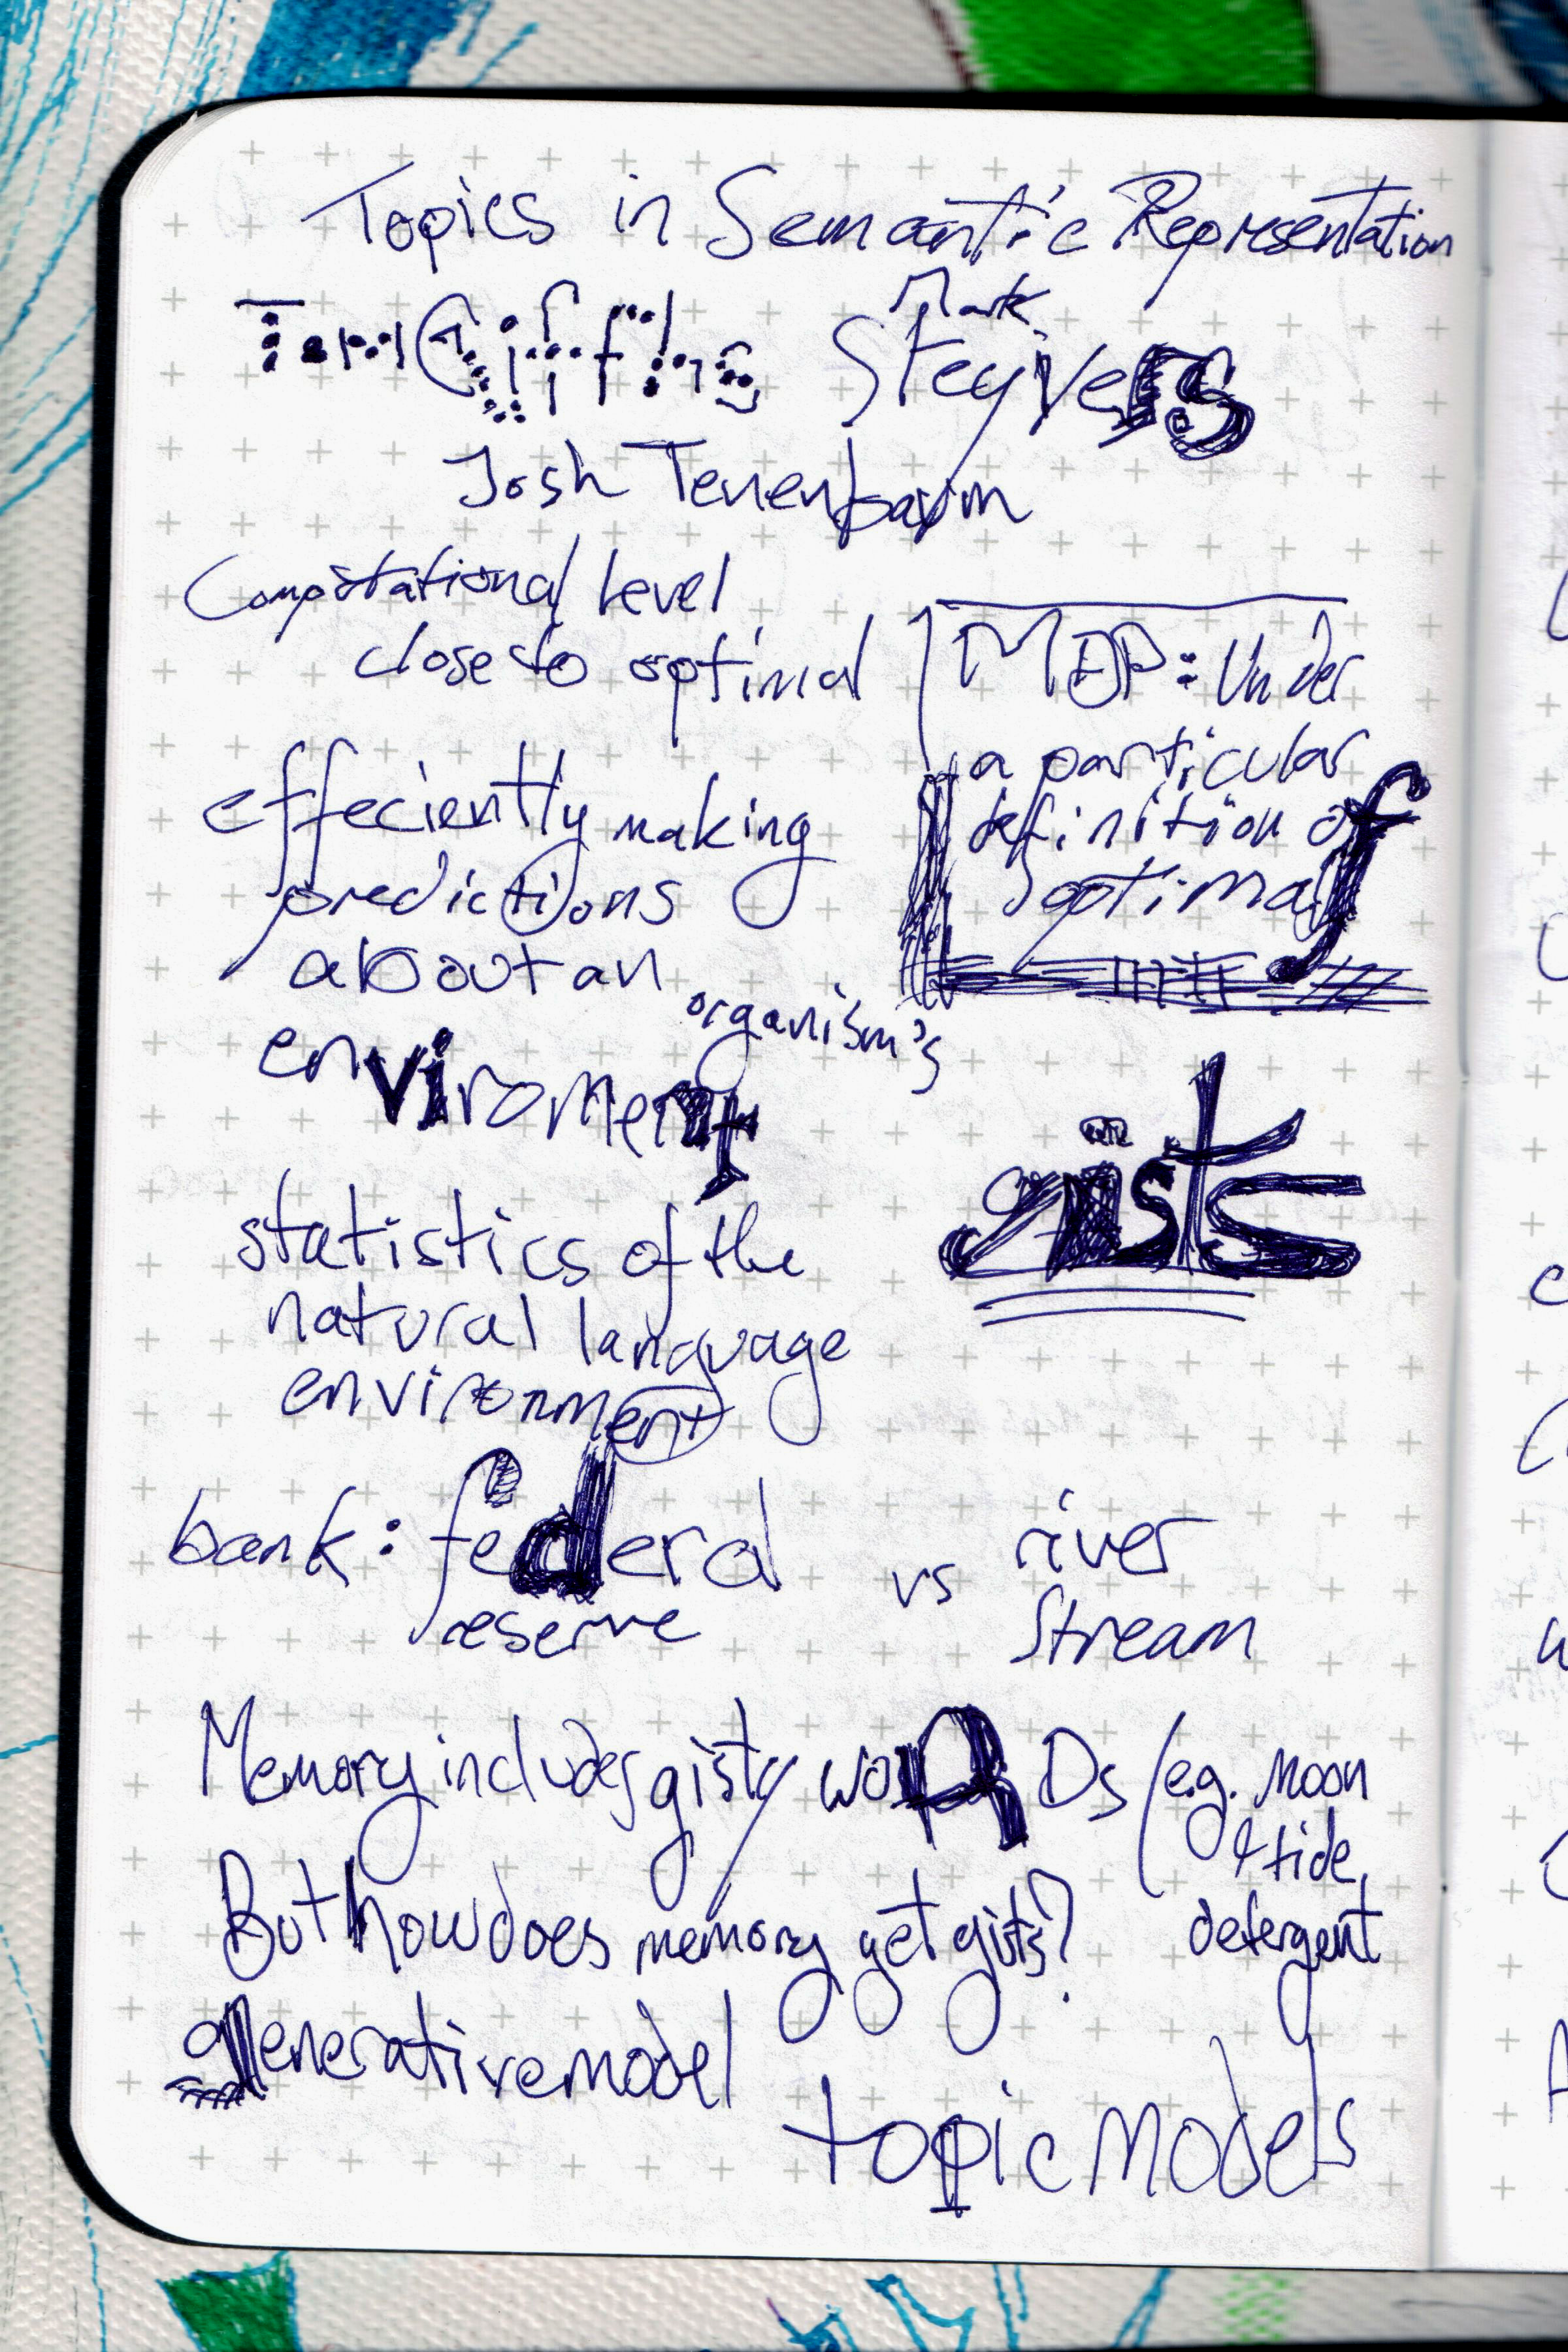 Topics in Semantic Representation
Tom Griffiths
Mark
Steyvers
Josh Tenenbaum
Computational level
close to optimal
MDP: Under
a particular
definition of
optimal
effeciently making
predictions
about an
organism's
enviroment
gists
statistics of the
natural language
environment
bank: federal
reserve
vs
river
stream
Memory includes gisty woRDs (e.g. moon
& tide,
detergent
But how does memory get gists?
generative model
topic models